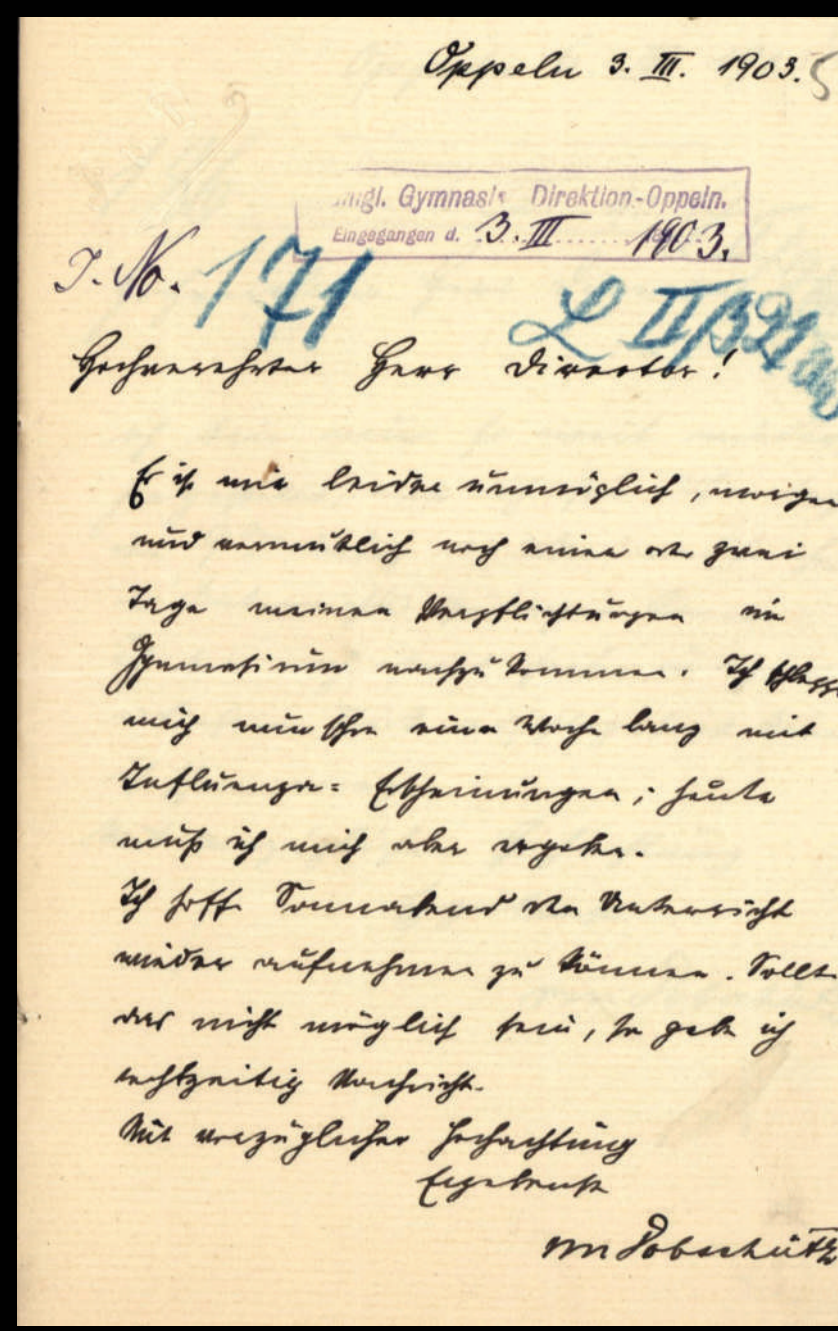 Oppeln 3. III. 1903.
Königl. Gymnasial-Direktion-Oppeln.
Eingegangen d. 3. III 1903.
J. No. 171
L II
Hochverehrter Herr Director!
Es ist mir leider unmöglich, morgen
und vermutlich noch einen oder zwei
Tage meinen Verpflichtungen im
Gymnasium nachzukommen. Ich schleppe
mich nun schon eine Woche lang mit
Influenza= Erscheinungen; heute
muß ich mich aber ergeben.
Ich hoffe Sonnabend den Unterricht
wieder aufnehmen zu können. Sollte
das nicht möglich sein, so gebe ich
rechtzeitig Nachricht.
Mit vorzüglicher Hochachtung
Ergebenst
von Dobschütz